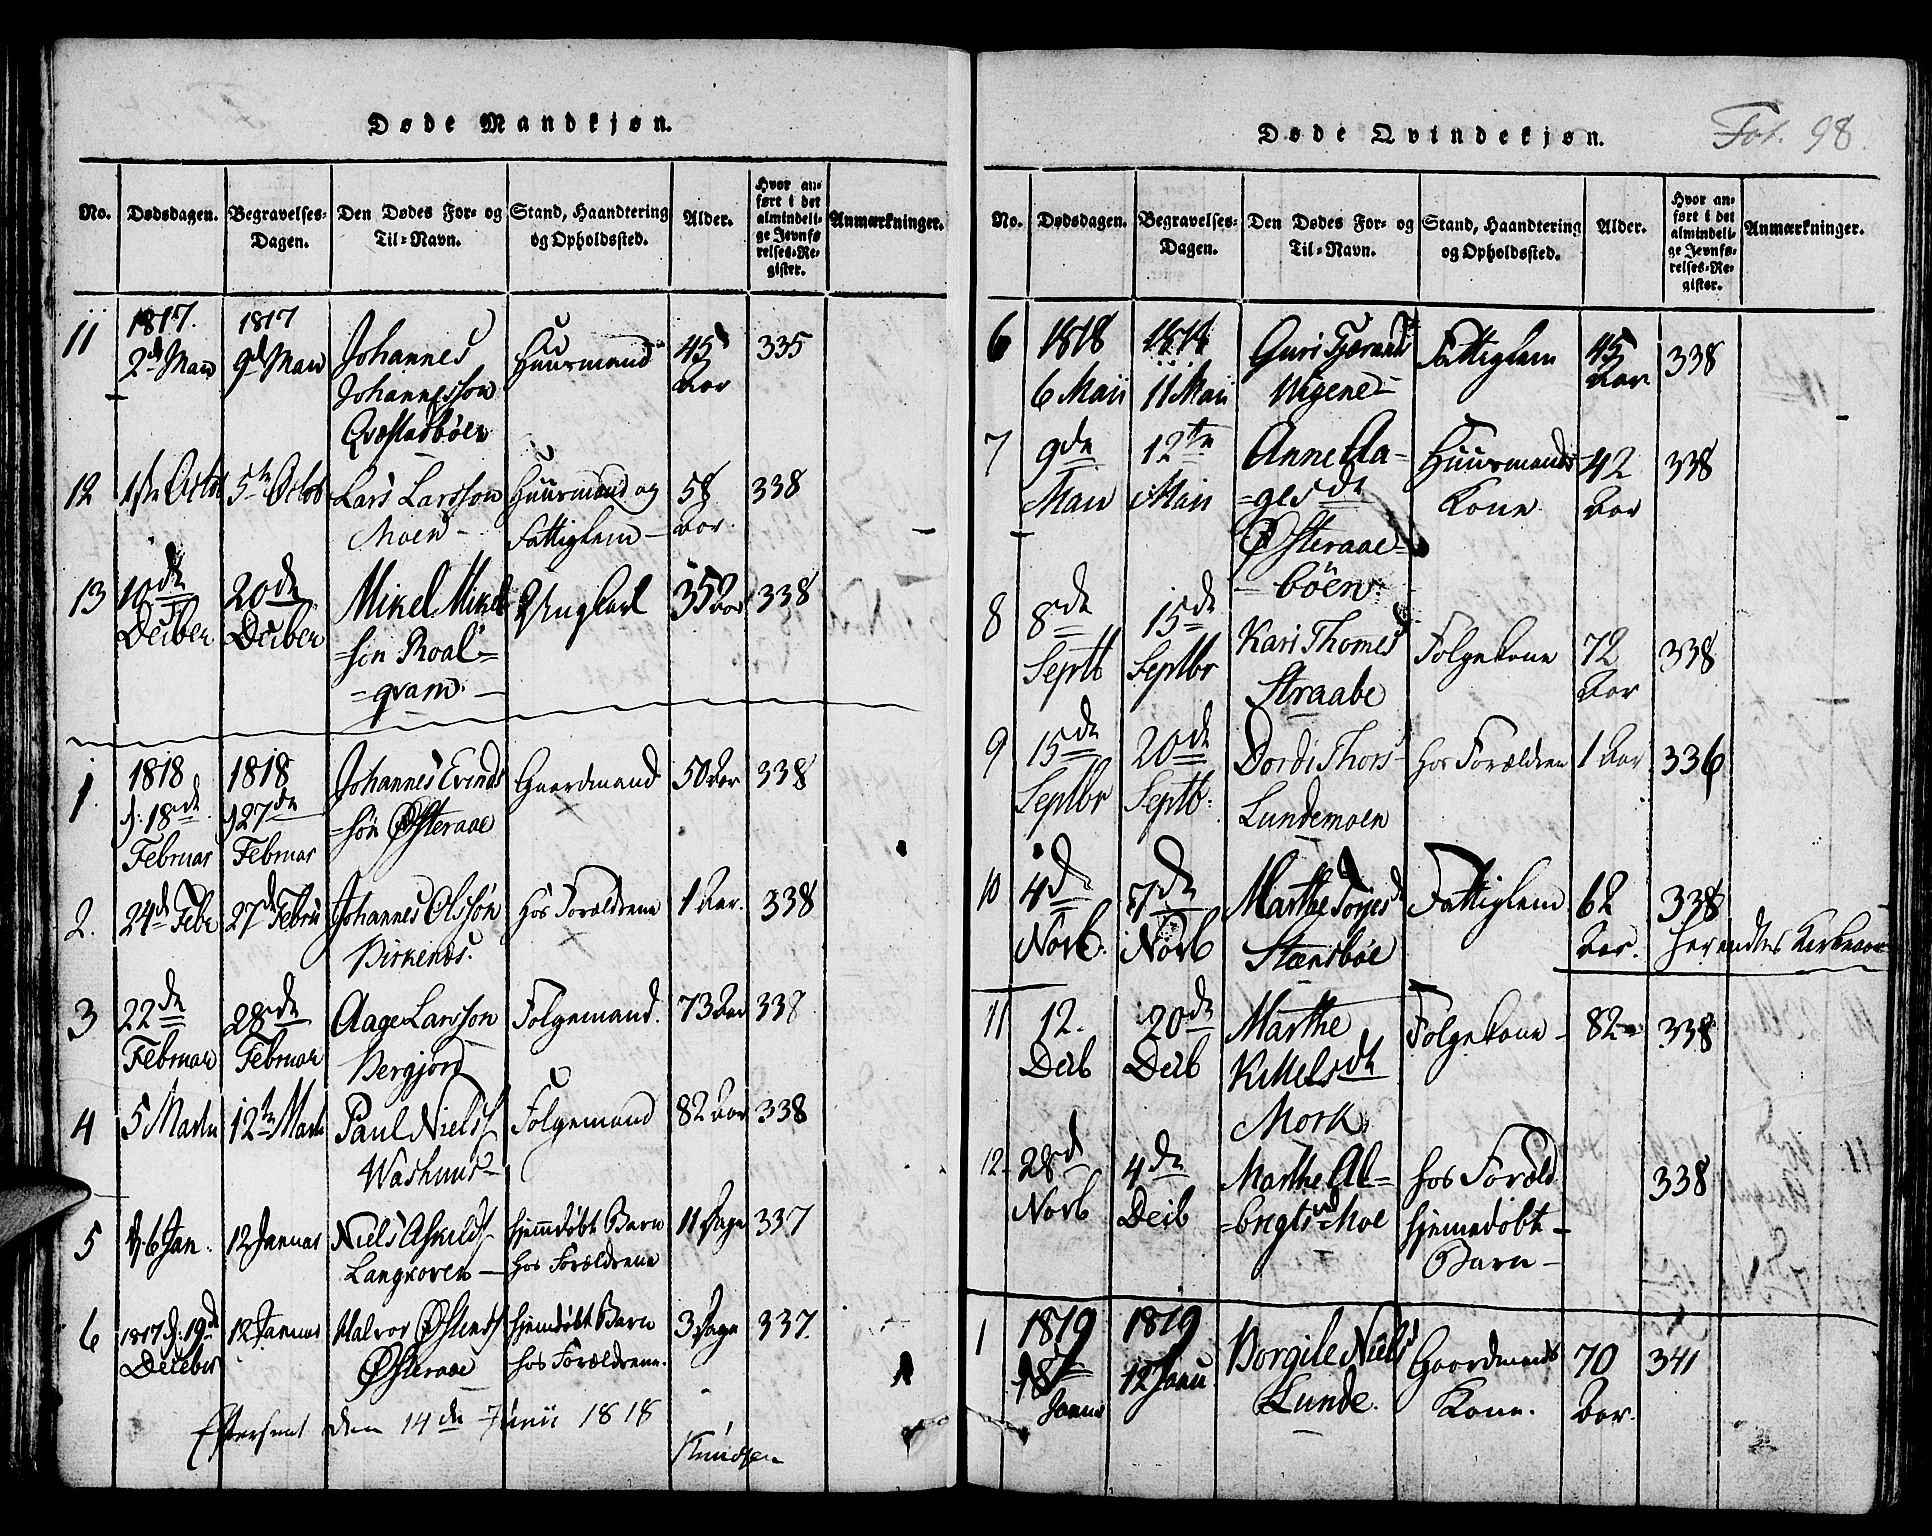 Døde Mandkjøn.
No. Dødsdagen. Begravelses-Dagen. Den Dødes For- og Til-Navn. Stand, Haandtering og Opholdssted. Alder. Hvor anført i det almindelige Jevnførelses-Register. Anmærkninger.
11 1817. 1817 Johannes Huusmand 45 335
2d Maii 9d Maii Johannesson Aar
Qvæstadbøen
12 1ste Octob 5te Octob Lars Larsson Huusmand og 58 338
Moen Fattiglem Aar.
13 10de 20de Mikel Mikels Ungkarl 35 Aar 338
Decber Decber =søn Roal=
=qvam.
1 1818 1818 Johannes Evinds Gaardmand 50 Aar 338
d. 18de d 27de =søn Østeraae
Februar Februar
2. 24de Febr 27de Febru Johannes Olssøn Hos Forældrene 1 Aar. 338
Birkenæs.
3 22de 28de Aage Larsson Folgemand. 73 Aar 338
Februar Februar Bergjord
4 5 Marts 12te Marts Paul Niels Folgemand 82 Aar 338
Washuus
5 d. 6 Jan. 12 Januar Niels Aslilds hjemdøbt Barn 11 Dage 337
Langroren hos Forældrene
6 1817 d. 19de 12 Januar Halvor Østends hjemdøbt Barn 3 Dage 337.
Decber Østeraae hos Forældrene.
Efterseet den 14de Junii 1818
Knudsen
Døde Qvindekjøn.
Fol. 98.
No. Dødsdagen. Begravelses-Dagen. Den Dødes For- og Til-Navn. Stand, Haandtering og Opholdssted. Alder. Hvor anført i det almindelige Jevnførelses-Register. Anmærkninger.
6 1818 1818 Guri Tjerands Fattiglem 45 338
6 Maii 11 Maii Vigene Aar
7 9de 12te Anne Aa= Huusmands 42 338
Maii Maii =gesdr Kone Aar
Østeraae=
=bøen.
8 8de 15de Kari Thomesd Folgekone 72 338
Septb Septbr Straabe Aar
9 15de 20de Dordi Thors Hos Forældrene 1 Aar 336
Septbr Septb. Lundemoen
10 4de 7de Marthe Torgesd Fattiglem 62 338
Novb. Novb Stensbøe Aar. her endtes Kirkeaar
11 12. 20de Marthe Folgekone 82 338
Decb Decb Kittelsdr
Mork
12. 28de 4de Marthe Al= hos Foræld 338
Novb Decb =brigts Moe hjemedøbt
Barn
1 1819 1819 Borgile Nielsd Gaardmands 70 341
Janua 12 Janu. Lunde. Kone. Aar.